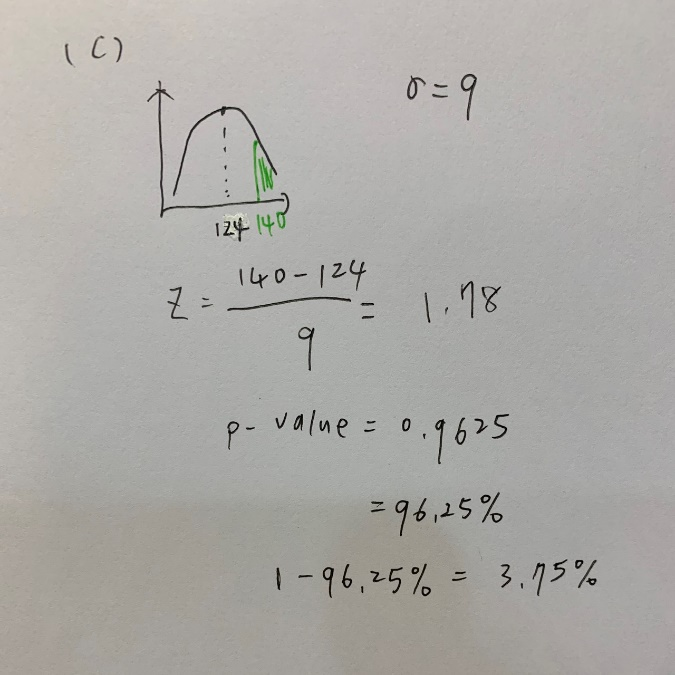 1 C)
σ = 9
124 140
Z = \frac{140 - 124}{9} = 1.78
p- value = 0.9625
= 96.25%
1 - 96.25% = 3.75%